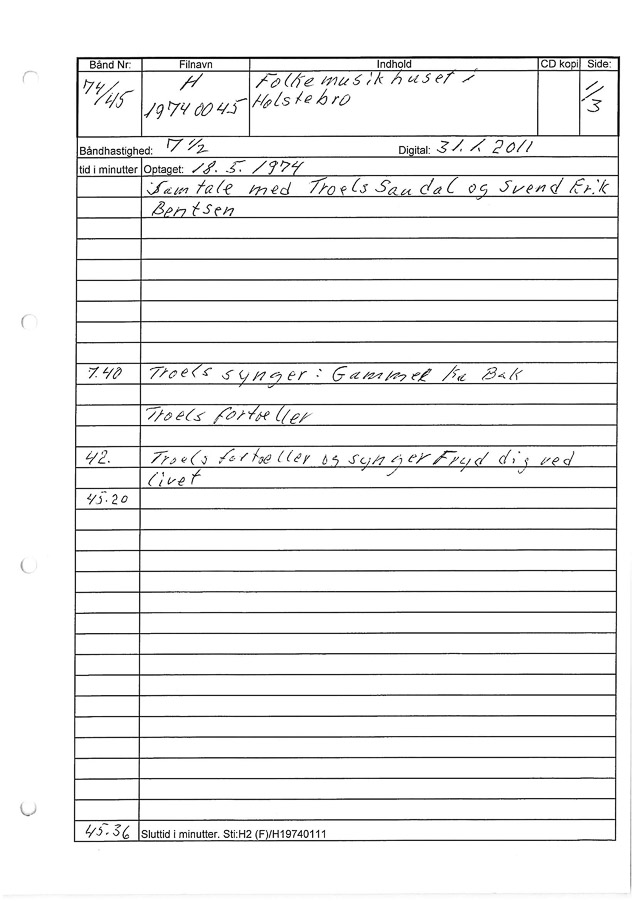 Bånd Nr: Filnavn Indhold CD kopi Side:
74/45 H Folkemusikhuset i 1/3
19740045 Holstebro
Båndhastighed: 7 1/2 Digital: 31.1.2011
tid i minutter Optaget: 18.5.1974
Samtale med Troels Sandal og Svend Erik
Bentsen
7.40 Troels synger: Gammel Bak
Troels fortæller
42. Troels fortæller og synger Fryd dig ved
livet
45.20
45.36 Sluttid i minutter. Sti:H2 (F)/H19740111